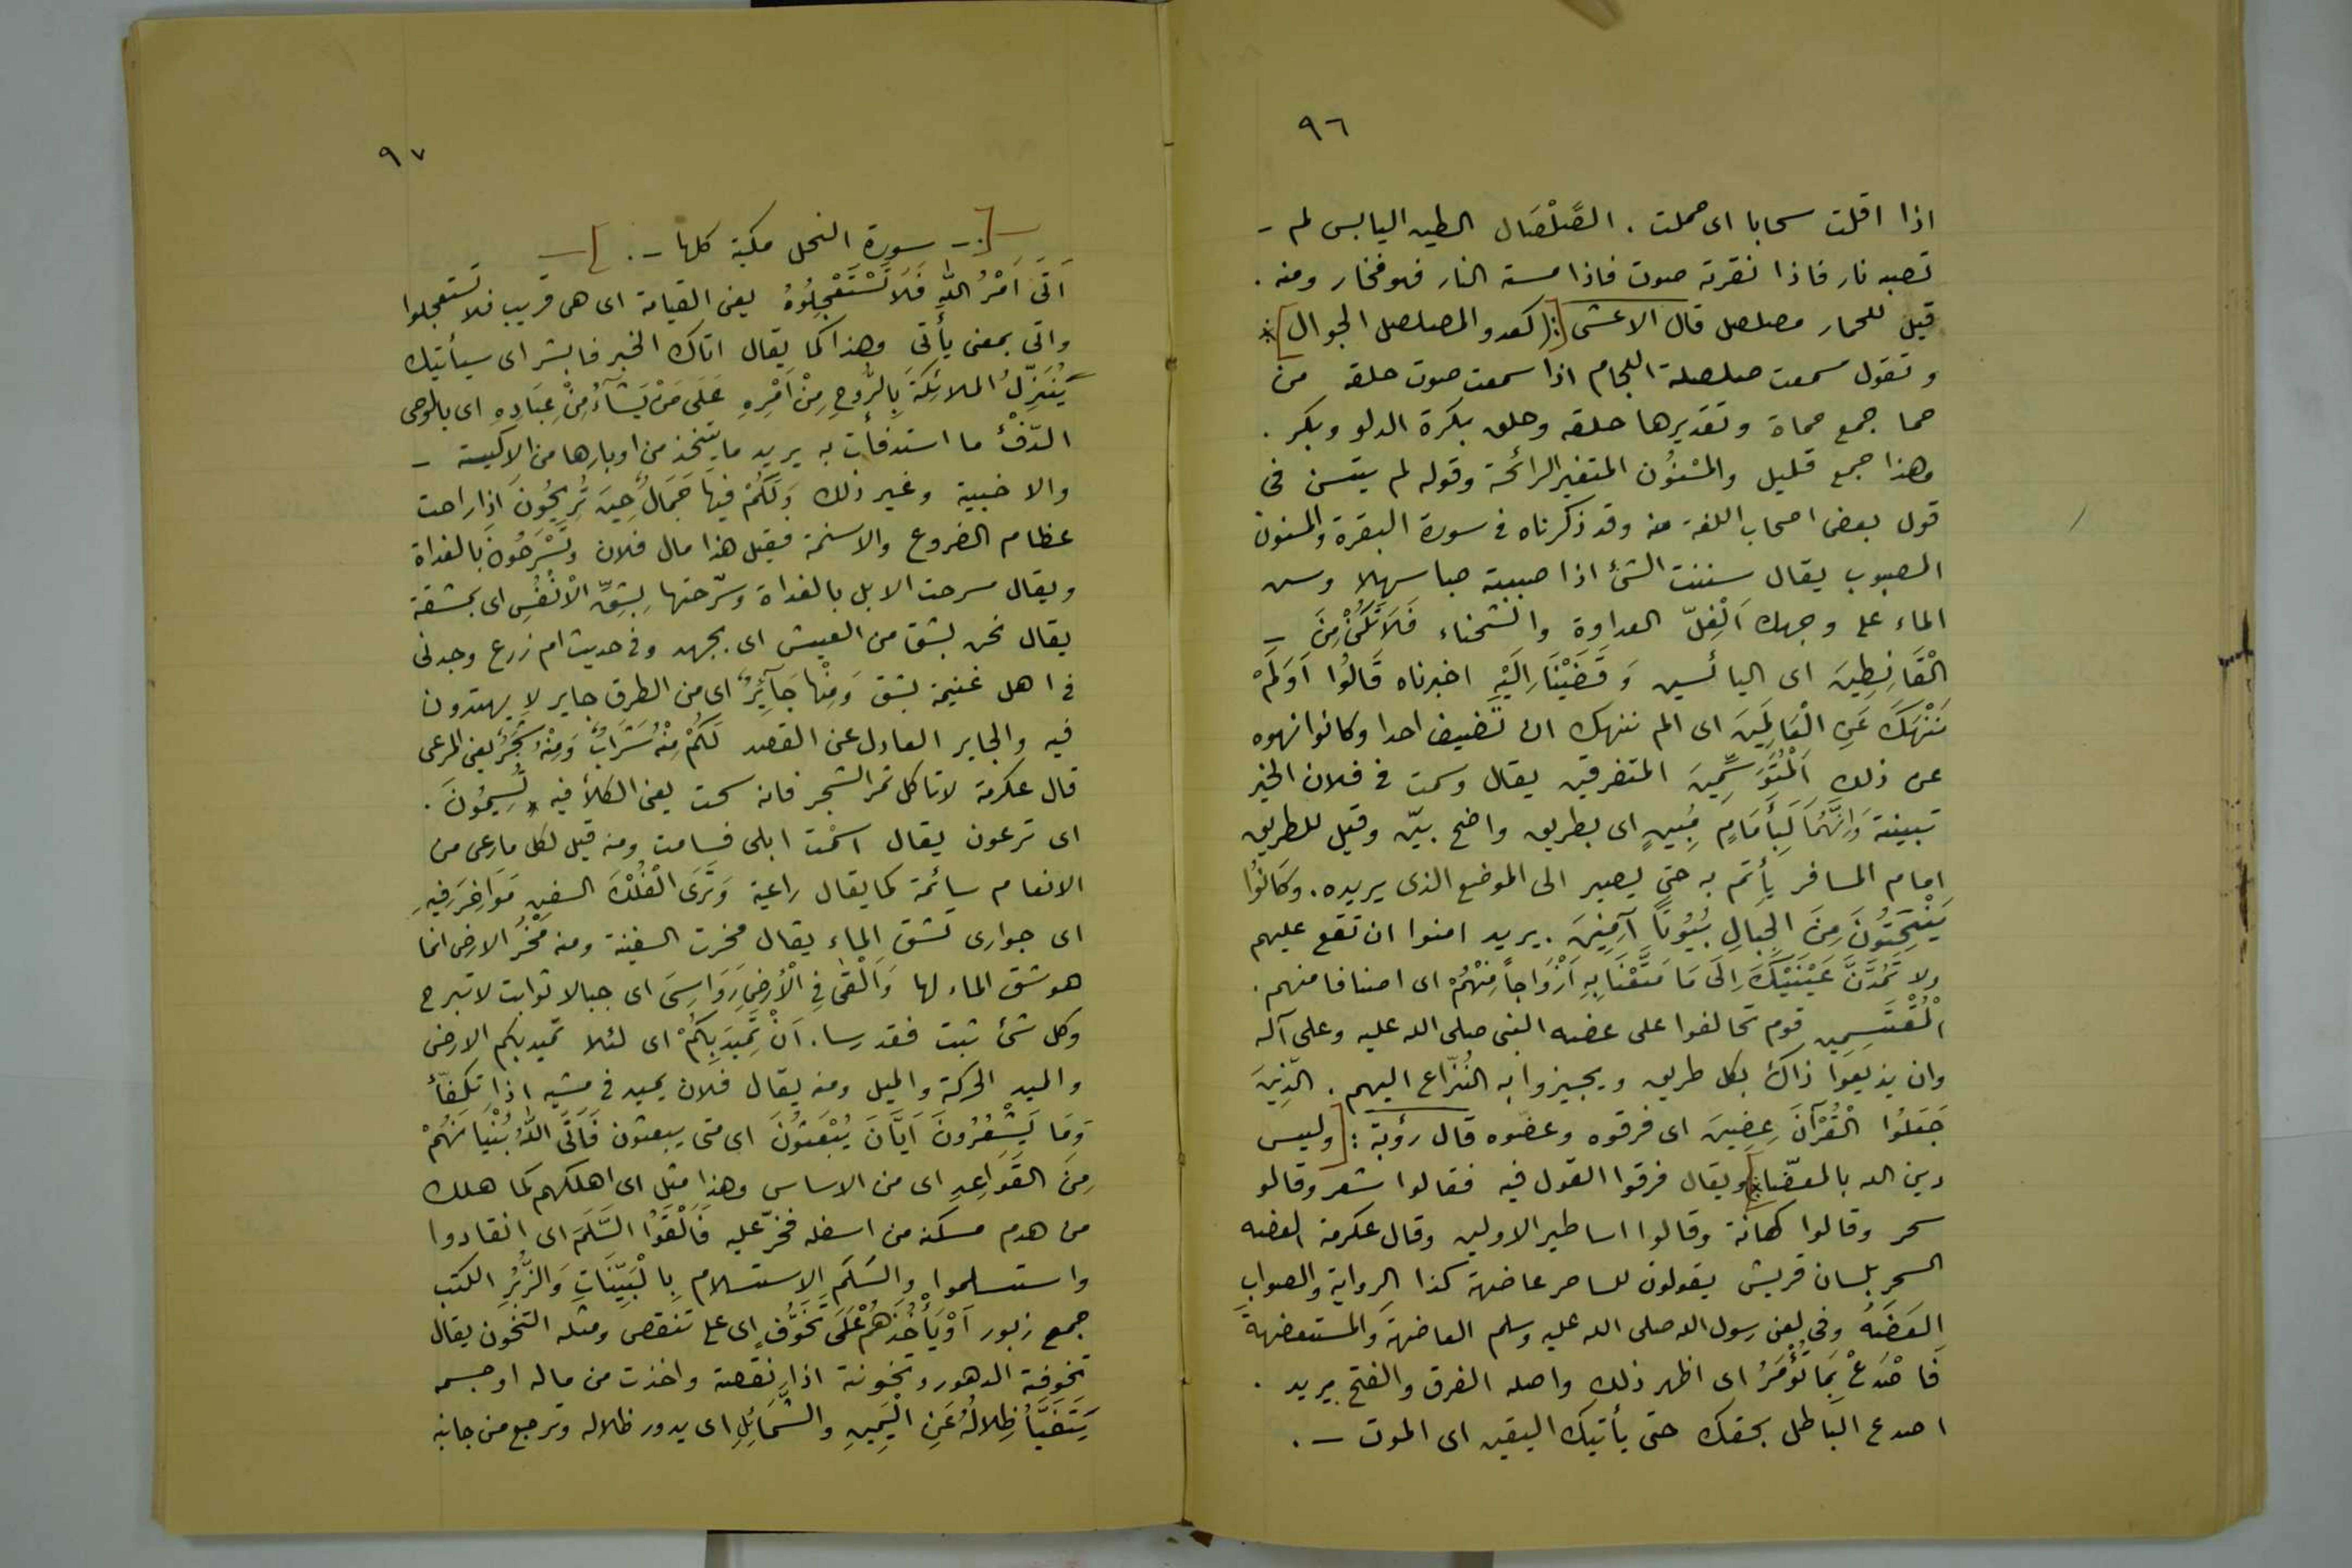 ٩٦
اذا اقلت سحابا اى حملت . الصَّلْصَال الطين اليابس لم -
تصبه نار فاذا نقرته صوت فاذا مسته النار فهو فخار ومنه .
قيل للحمار مصلصل قال الاعشى [:( كعدو المصلصل الجوال ]*
وتقول سمعت صلصلة اللجام اذا سمعت صوت حلقه من
حما جمع حماة وتقديرها حلقه وحلق بكرة الدلو وبكر .
وهذا جمع قليل والمسْنُون المتغير الرائحة وقوله لم يتسن فى
قول بعض اصحاب اللغة منه وقد ذكرناه فى سورة البقرة والمسنون
المصبوب يقال سننت الشئ اذا صببته صبا سهلا وسن
الماء على وجهك اَلْغِلّ العداوة والشحناء فَلَا تَكُنْ مِنَ -
الْقَانِطِينَ اى اليائسين وَقَضَيْنَا اِلَيْهِ اخبرناه قَالُوا اَوَلَمْ
نَنْهَكَ عَنِ الْعَالَمِينَ اى الم ننهك ان تضيف احدا وكانوا نهوه
عن ذلك اَلْمُتَوَسِّمِينَ المتفرقين يقال وسمت فى فلان الخير
تبينته وَاِنَّهُمَا لَبِأَمَامٍ مُبِينٍ اى بطريق واضح بيّن وقيل للطريق
امام المسافر يأتم به حتى يصير الى الموضع الذى يريده . وَكَانُوْا
يَنْحِتُونَ مِنَ الْجِبَالِ بُيُوتاً آمِنِينَ . يريد امنوا ان تقع عليهم
ولا تَمُدَّنَّ عَيْنَيْكَ اِلَى مَا مَتَّعْنَا بِهِ اَزْوَاجاً مِنْهُمْ اى اصنافا منهم .
الْمُقْتَسِمِين قوم تحالفوا على عضه النبى صلى الله عليه وعلى آله
وان يذيعوا ذاك بكل طريق ويجيزوا به النُّزّاع اليهم . الّذِينَ
جَعَلُوا الْقُرْآنَ عِضِينَ اى فرقوه وعضّوه قال رؤبة : [ وليس
دين الله بالمعضّا ]* ويقال فرقوا القول فيه فقالوا شعر وقالو
سحر وقالوا كهانة وقالوا اساطير الاولين وقال عكرمة العضه
السحر بلسان قريش يقولون للساحر عاضهة كذا الرواية والصواب
العَضَهُ وفى لعن رسول الله صلى الله عليه وسلم العاضهة والمستعضهة
فَاصْدَعْ بِمَا تُؤْمَرُ اى اظهر ذلك واصله الفرق والفتح يريد .
اصدع الباطل بحقك حتى يأتيك اليقين اى الموت - .
٩٧
-[ : - سورة النحل مكية كلها - . ]-
اَتَى اَمْرُ اللهِ فَلَا تَسْتَعْجِلُوْهُ يعنى القيامة اى هى قريب فلا تستعجلوا
واتى بمعنى يأتى وهذا كما يقال اتاك الخير فابشر اى سيأتيك
يُنَزِّلُ الملائِكَةَ بِالرُّوحِ مِنْ اَمْرِهِ عَلَى مَنْ يَشَآءُ مِنْ عِبَادِه اى بالوحى
الدّفْئُ ما استدفأت به يريد ما يتخذ من اوبارها من الاكيسة -
والاخبية وغير ذلك وَلَكُمْ فِيهَا جَمَالٌ حِينَ تُرِيحُونَ اذا راحت
عظام الضروع والاسنمة فقيل هذا مال فلان وتَسْرَحُونَ بالغداة
ويقال سرحت الابل بالغداة وسرّحتها بِشِقِّ الْاَنْفُسِ اى بمشقة
يقال نحن بشق من العيش اى بجهد وفى حديث ام زرع وجدنى
فى اهل غنيمة بشق وَمِنْها جَآئِرٌ اى من الطرق جاير لا يهتدون
فيه والجاير العادل عن القصد لَكُمْ مِنْهُ شَرَابٌ وَمِنْهُ شَجَرٌ يعنى المرعى
قال عكرمة لا تاكل ثمر الشجر فانه سحت يعنى الكلأ فيه تُسِيمُونَ .
اى ترعون يقال اسمْت ابلى فسامت ومنه قيل لكل ما رعى من
الانعام سائمة كما يقال راعية وَتَرَى الْفُلْكَ السفن مَوَاخِرَ فِيهِ
اى جوارى تشق الماء يقال مخرت السفينة ومنه مَخْرُ الارض انما
هو شق الماء لها وَاَلْقَى فِى الْاَرْضِ رَوَاسِىَ اى جبالا ثوابت لا تبرح
وكل شئ ثبت فقد رسا . اَنْ تَمِيدَ بِكُمْ اى لئلا تميد بكم الارض
والميد الحركة والميل ومنه يقال فلان يميد فى مشيه اذا تكفّأ
وَمَا يَشْعُرُونَ اَيَّانَ يُبْعَثُونَ اى متى يبعثون فَاَتَى اللهُ بُنْيَانَهُمْ
مِنَ القَوَاعِدِ اى من الاساس وهذا مثل اى اهلكهم كما هلك
من هدم مسكنه من اسفله فخرّ عليه فَاَلْقَوُا السَّلَمَ اى انقادوا
واستسلموا والسَلَم الاستسلام بِالْبَيِّنَاتِ وَالزُّبُرِ الكتب
جمع زبور اَوْ يَأْخُذَهُمْ عَلَى تَخَوُّفٍ اى على تنقص ومثله التخون يقال
تخوفته الدهور وتخونته اذا نقصته واخذت من ماله او جسمه
يَتَفَيَّأُ ظِلالُهُ عَنِ الْيَمِينِ والشَّمَائِلِ اى يدور ظلاله وترجع من جانب